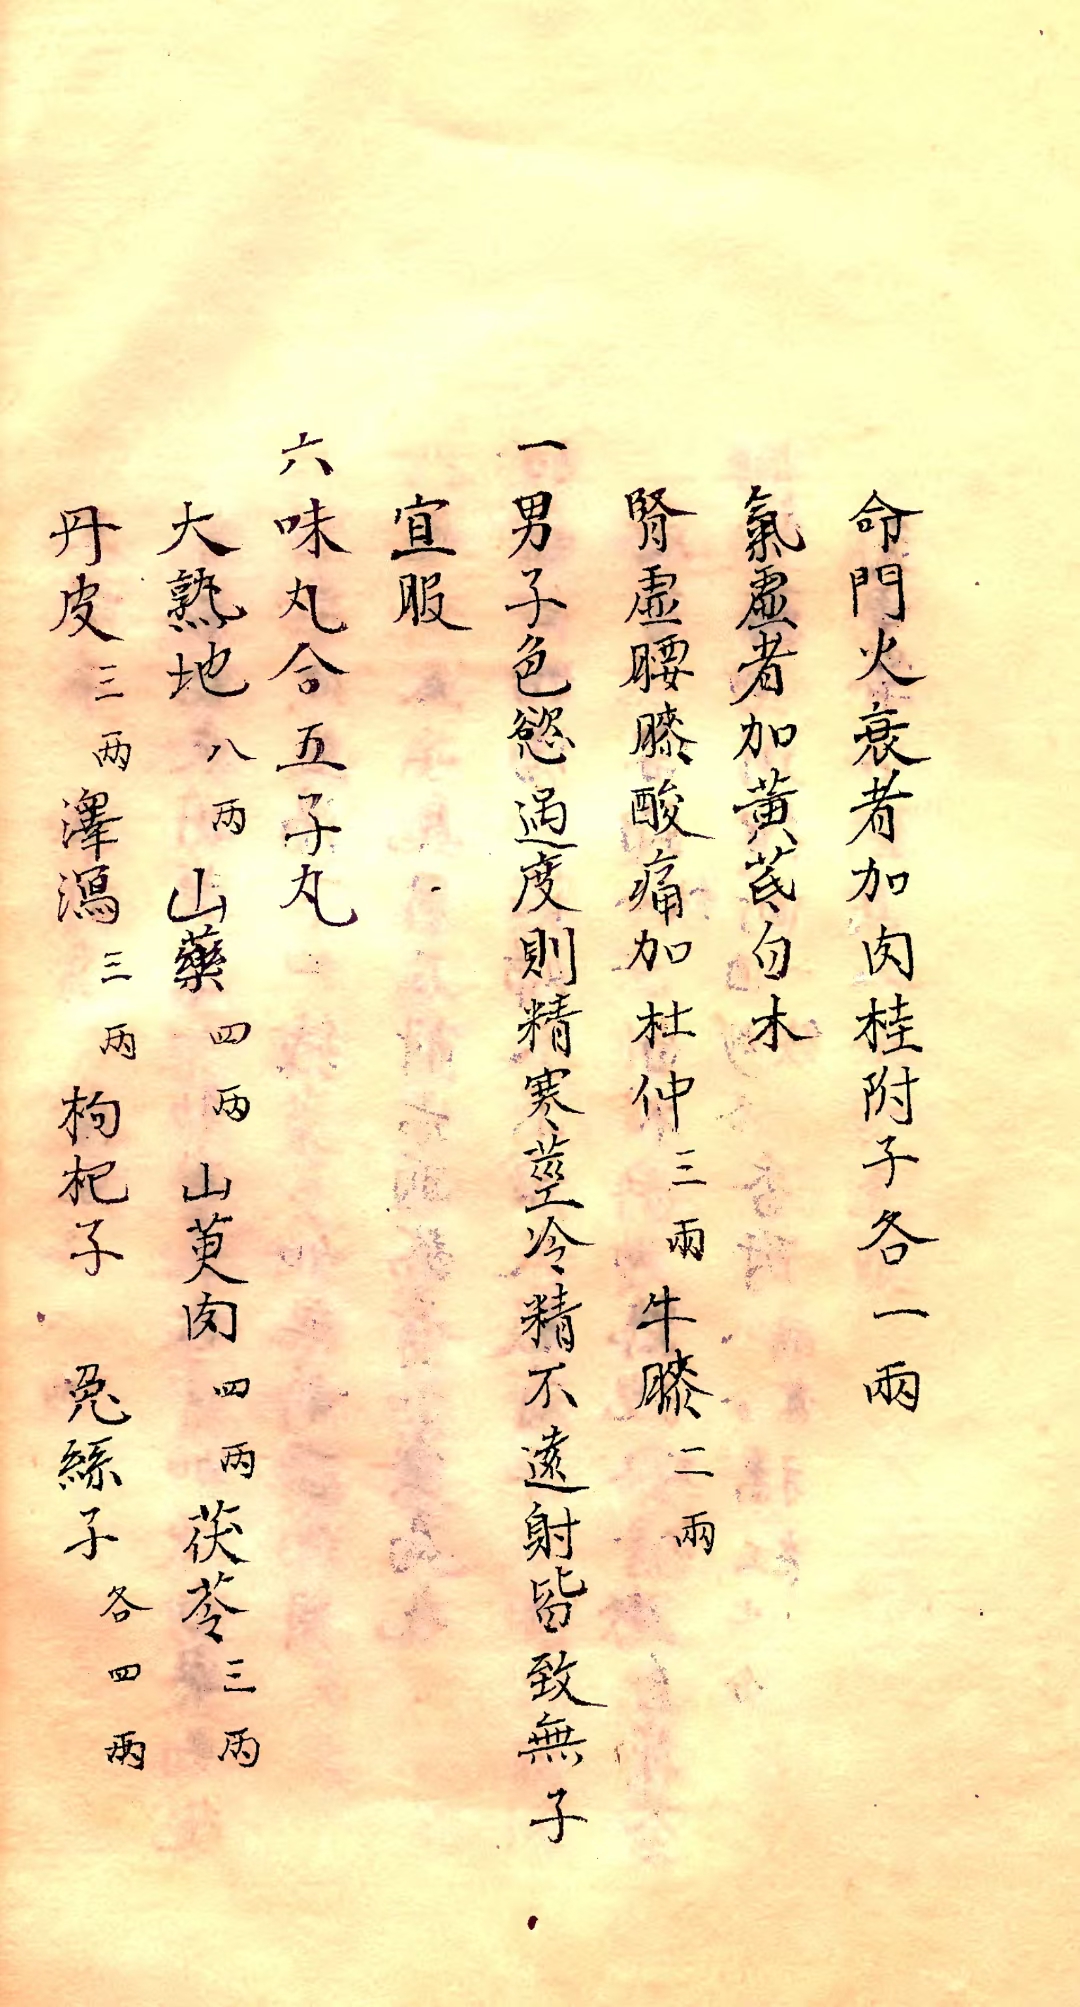 命門火衰者加肉桂附子各一兩
氣虛者加黃芪白木
腎虛腰膝酸痛加杜仲三兩牛膝二兩
一男子色慾過度則精寒莖冷精不遠射皆致無子
宜服
六味丸合五子丸
大熟地八兩山藥四兩山萸肉四兩茯苓三兩
丹皮三兩澤瀉三兩枸杞子兔絲子各四兩